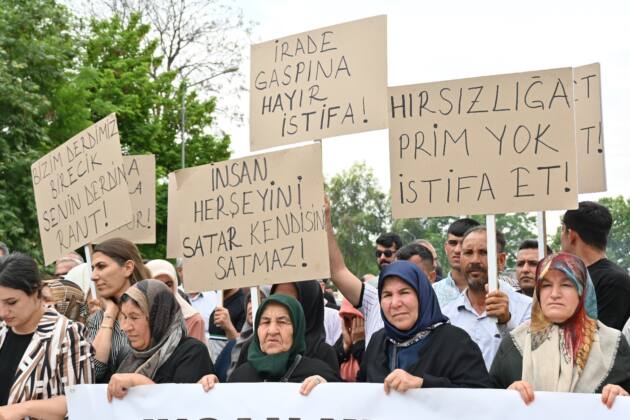 BİZİM DERDİMİZ
BİRECİK
SENİN DERDİN
RANT!
İRADE
GASPINA
HAYIR
İSTİFA!
İNSAN
HERŞEYİNİ
SATAR KENDİSİNİ
SATMAZ!
HIRSIZLIĞA
PRİM YOK
İSTİFA ET!